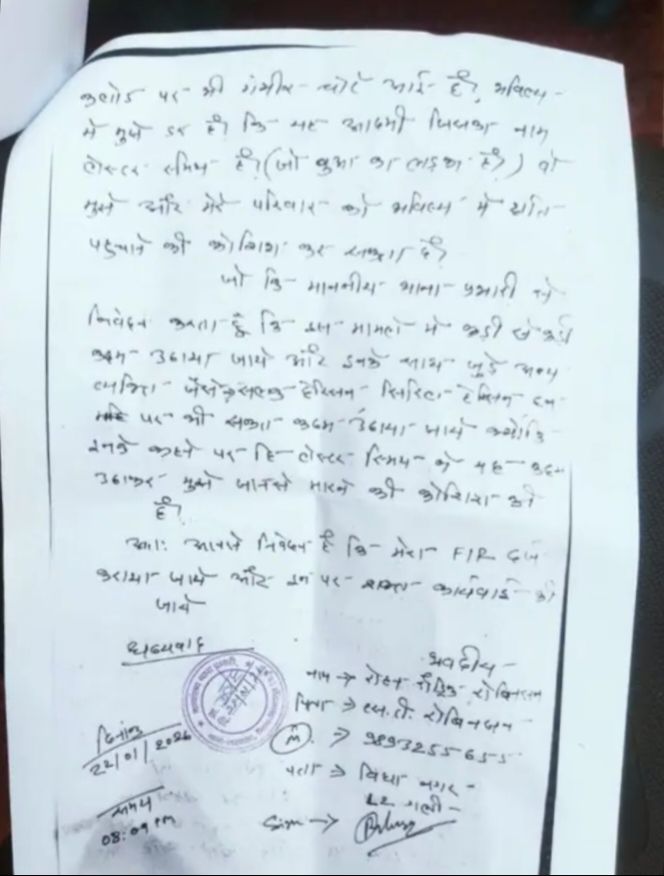 पर भी गंभीर चोटें आई है, भविष्य
में मुझे डर है कि यह आदमी जिसका नाम
है। (जो बुआ का लड़का है।) वो
मुझे और मेरे परिवार को भविष्य में क्षति
पहुचाने की कोशिश कर सकता है।
जो कि माननीय थाना प्रभारी से
निवेदन करता हूँ कि इस मामले में कड़ी से कड़ी
कदम उठाया जाये और इनके साथ जुड़े अन्य
पर भी सख्त कदम उठाया जाये क्योंकि
इनके कहने पर हि ने यह कदम
उठाकर मुझे जानसे मारने की कोशिश की
है।
अतः आपसे निवेदन है कि मेरा FIR दर्ज
कराया जाये और इन पर सख्त कार्यवाई की
जाये
धन्यवाद
भवदीय -
नाम →
पिता → एस.टी. रोबिनसन
दिनांक
22/01/2026
M. → 9893255655
पता → विद्या नगर -
गली -
समय
08:09 PM
Sign →